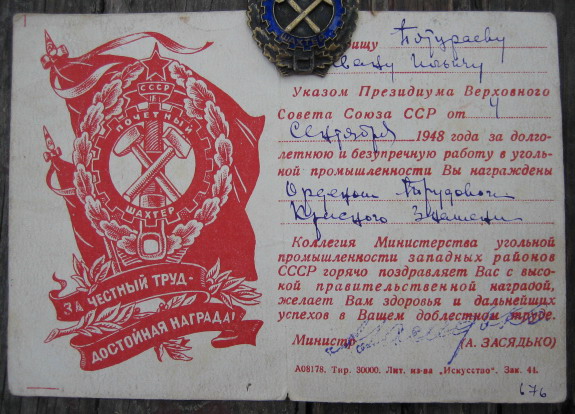 СССР
ПОЧЕТНЫЙ
ШАХТЕР
ЗА ЧЕСТНЫЙ ТРУД-
ДОСТОЙНАЯ НАГРАДА!
ищу Потураеву
вану Ильичу
Указом Президиума Верховного
Совета Союза ССР от 4
сентября 1948 года за долго-
летнюю и безупречную работу в уголь-
ной промышленности Вы награждены
Орденом Трудового
Красного Знамени
Коллегия Министерства угольной
промышленности западных районов
СССР горячо поздравляет Вас с высо-
кой правительственной наградой,
желает Вам здоровья и дальнейших
успехов в Вашем доблестном труде.
Министр (А. ЗАСЯДЬКО)
А08178. Тир. 30000. Лит. из-ва „Искусство". Зак. 44.
676